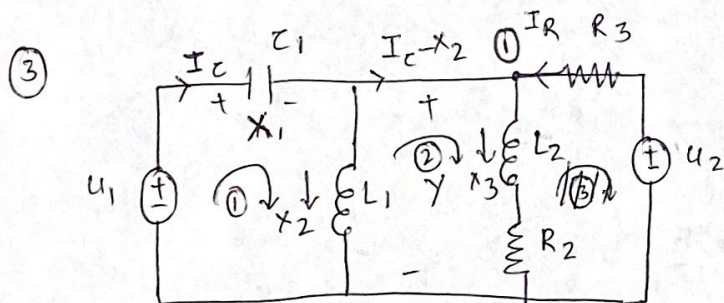 ③
I_C
C_1
I_C-X_2
①
I_R
R_3
+
-
X_1
+
u_1
①
X_2
L_1
②
Y
X_3
L_2
③
u_2
R_2
-